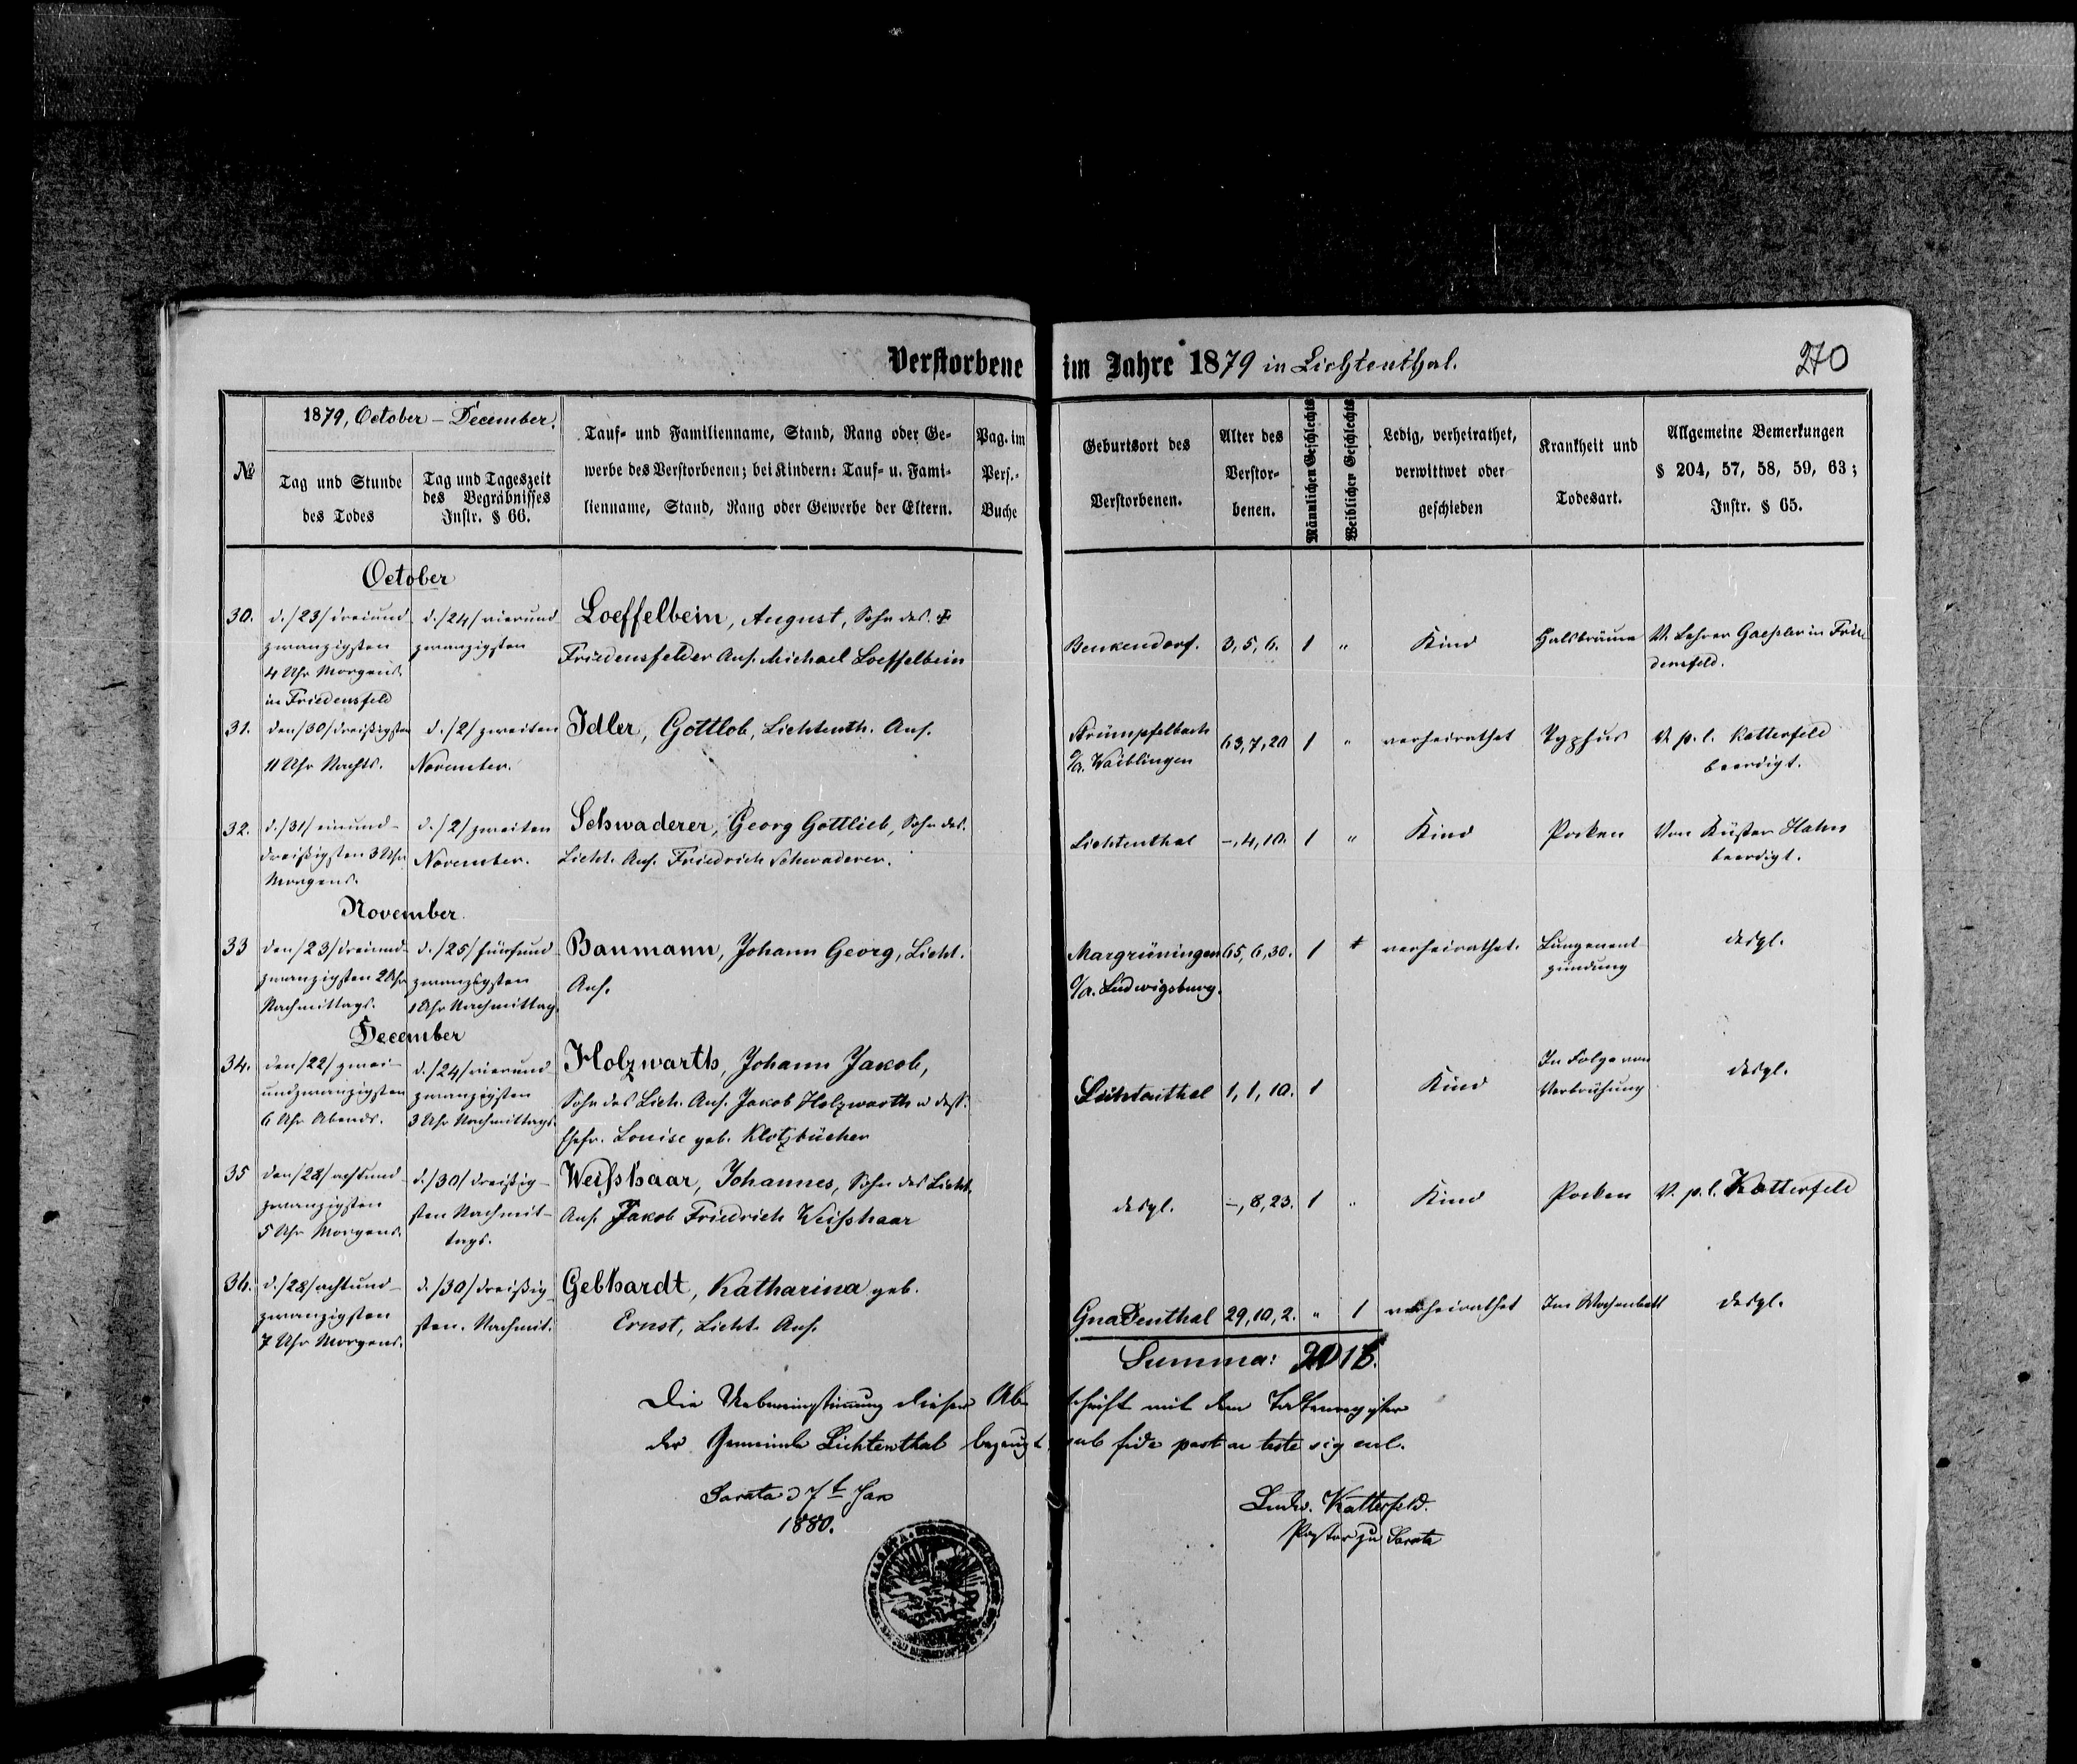 Verstorbene im Jahre 1879 in Lichtenthal.
270
№
1879, October – December.
Tag und Stunde
des Todes
Tag und Tageszeit
des Begräbnisses
Instr. § 66.
Tauf- und Familienname, Stand, Rang oder Ge-
werbe des Verstorbenen; bei Kindern: Tauf- u. Fami-
lienname, Stand, Rang oder Gewerbe der Eltern.
Pag. im
Pers.-
Buche
Geburtsort des
Verstorbenen.
Alter des
Verstor-
benen.
Männlichen Geschlechts
Weiblichen Geschlechts
Ledig, verheirathet,
verwittwet oder
geschieden
Krankheit und
Todesart.
Allgemeine Bemerkungen
§ 204, 57, 58, 59, 63;
Instr. § 65.
October
30. d. /23/ dreiund-
zwanzigsten
4 Uhr Morgens.
in Friedensfeld
d. /24/ vierund
zwanzigsten
Loeffelbein, August, Sohn des ✝
Friedensfelder Ans. Michael Loeffelbein
Benkendorf. 3, 5, 6. 1 " Kind Halsbräune V. Lehrer Gaessler in Frie
densfeld.
31. den /30/ dreißigsten
11 Uhr Nachts.
d. /2/ zweiten
November.
Idler, Gottlob, Lichtenth. Ans.
Krümpfelbach
O/A. Waiblingen
63, 7, 20 1 " verheirathet Typhus V. p. l. Katterfeld
beerdigt.
32. d. /31/ einund-
dreißigsten 3 Uhr
Morgens.
d. /2/ zweiten
November.
Schwaderer, Georg Gottlieb, Sohn des
Licht. Ans. Friedrich Schwaderer.
Lichtenthal –, 4, 10. 1 " Kind Pocken Von Küster Hahn
beerdigt.
November.
33 den /23/ dreiund-
zwanzigsten 2 Uhr
Nachmittags.
d. /25/ fünfund-
zwanzigsten
1 Uhr Nachmittag.
Baumann, Johann Georg, Licht.
Ans.
Margrüningen
O/A. Ludwigsburg.
65, 6, 30. 1 verheirathet. Lungenent-
zündung
desgl.
December
34. den /22/ zwei-
undzwanzigsten
6 Uhr Abends.
d. /24/ vierund-
zwanzigsten
3 Uhr Nachmittags.
Holzwarth, Johann Jakob,
Sohn des Lich. Ans. Jakob Holzwarth u dess.
Ehefr. Louise geb. Klotzbücher
Lichtenthal 1, 1, 10. 1 Kind In Folge von
Verbrühung
desgl.
35 den /28/ achtund-
zwanzigsten
5 Uhr Morgens.
d. /30/ dreißig-
sten Nachmit-
tags.
Weißhaar, Johannes, Sohn des Licht.
Ans. Jakob Friedrich Weißhaar
desgl. –, 8, 23. 1 " Kind Pocken V. p. l. Katterfeld
36. d. /28/ achtund-
zwanzigsten
7 Uhr Morgens.
d. /30/ dreißig-
sten. Nachmit.
Gebhardt, Katharina geb.
Ernst, Licht. Ans.
Gnadenthal 29, 10, 2. " 1 verheirathet Im Wochenbett desgl.
Summa: 20 16.
Die Uebereinstimmung dieser Abschrift mit dem Todtenregister
der Gemeinde Lichtenthal bezeugt sub fide pastor
Sarata d 7t Jan
1880.
Ludw. Katterfeld.
Pastor zu Sarata